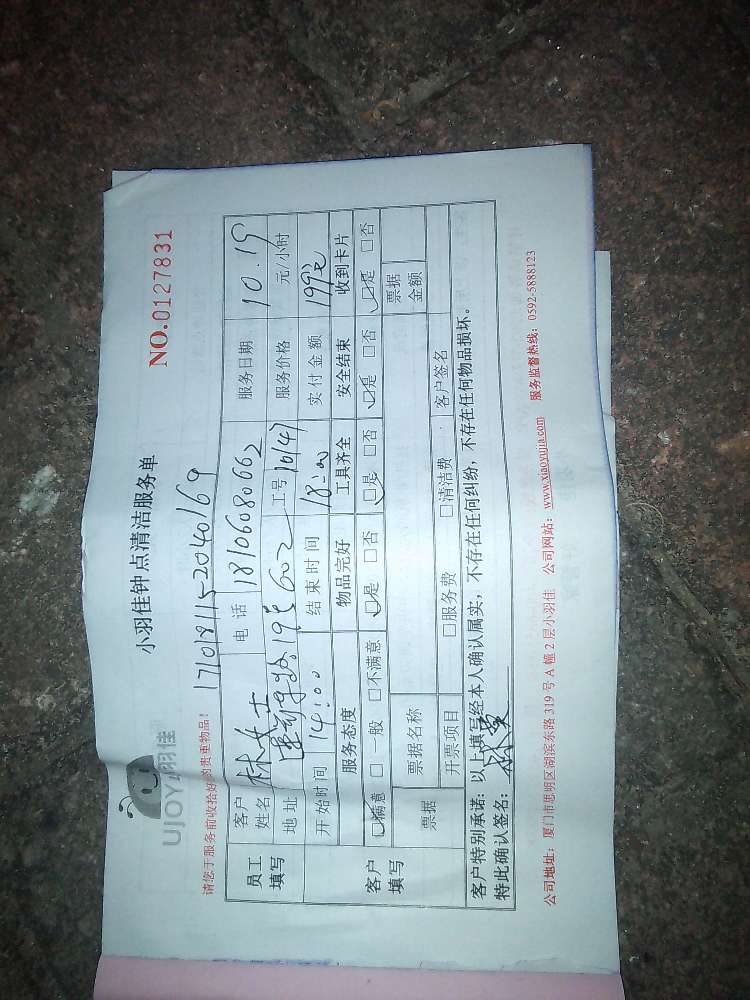 小羽佳钟点清洁服务单
NO.0127831
UJOY小羽佳
请您于服务前收拾好的贵重物品!
1710181152040169
员工填写
客户姓名 林女士 电话 18106080662 服务日期 10.19
地址 19号602 工号 10147 服务价格 元/小时
开始时间 14:00 结束时间 18:00 实付金额 199元
客户填写
服务态度 物品完好 工具齐全 安全结束 收到卡片
☑满意 □一般 □不满意 ☑是 □否 ☑是 □否 ☑是 □否 ☑是 □否
票据 票据名称 票据金额
开票项目 □服务费 □清洁费 客户签名
客户特别承诺:以上填写经本人确认属实,不存在任何纠纷,不存在任何物品损坏。
特此确认签名:
公司地址:厦门市思明区湖滨东路319号A幢2层小羽佳 公司网站:www.xiaoyujia.com 服务监督热线:0592-5888123